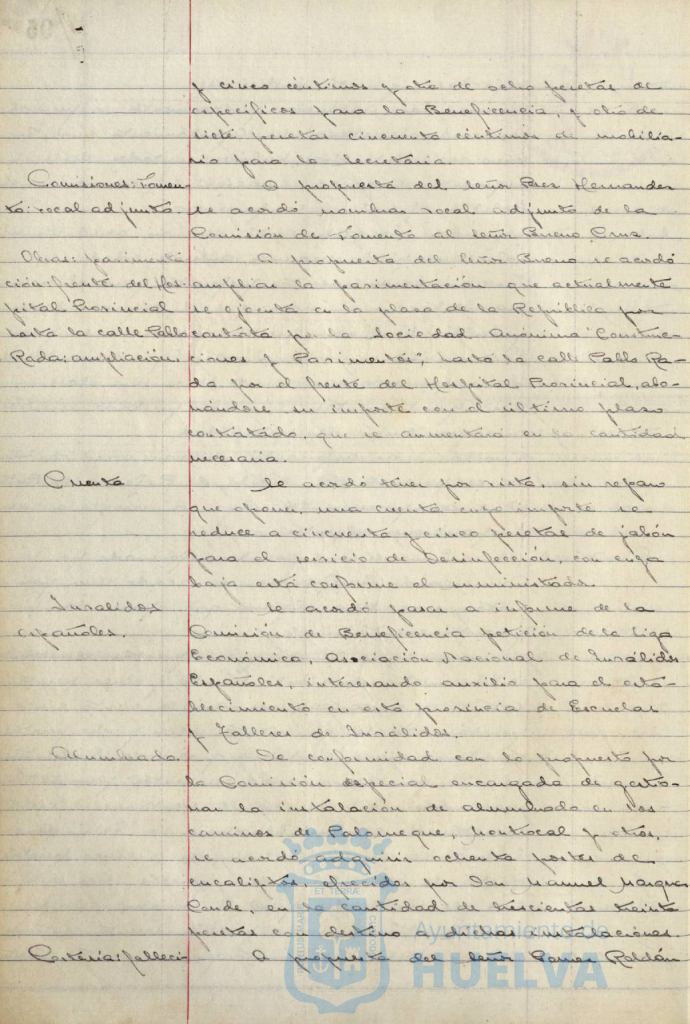 y cinco céntimos y otra de ocho pesetas de
específicos para la Beneficencia, y otro de
siete pesetas cincuenta céntimos de mobilia-
rio para la Secretaría.
Comisiones: Fomen-
to: vocal adjunto.
A propuesta del Señor Pérez Hernández
se acordó nombrar vocal adjunto de la
Comisión de Fomento al Señor Bueno Cruz.
Obras: pavimenta
ción: frente del Hos-
pital Provincial
hasta la calle Pablo
Rada: ampliación.
A propuesta del Señor Bueno se acordó
ampliar la pavimentación que actualmente
se ejecuta en la plaza de la República por
contrata por la Sociedad Anónima "Construc-
ciones y Pavimentos", hasta la calle Pablo Ra-
da por el frente del Hospital Provincial, abo-
nándose su importe con el último plazo
contratado, que se aumentará en la cantidad
necesaria.
Cuenta
Se acordó tener por vista, sin reparo
que oponer, una cuenta cuyo importe se
reduce a cincuenta y cinco pesetas de jabón
para el servicio de Desinfección, con cuya
baja está conforme el suministrador.
Inválidos
españoles.
Se acordó pasar a informe de la
Comisión de Beneficencia petición de la Liga
Económica, Asociación Nacional de Inválidos
Españoles, interesando auxilio para el esta-
blecimiento en esta provincia de Escuelas
y Talleres de Inválidos.
Alumbrado.
De conformidad con lo propuesto por
la Comisión especial encargada de gestio-
nar la instalación de alumbrado en los
caminos de Palomeque, Montrocal y otros,
se acordó adquirir ochenta postes de
eucaliptos, ofrecidos por Don Manuel Márquez
Conde, en la cantidad de trescientas treinta
pesetas con destino a dichas instalaciones.
Cartería: falleci-
A propuesta del Señor Roldán
Ayuntamiento de
HUELVA